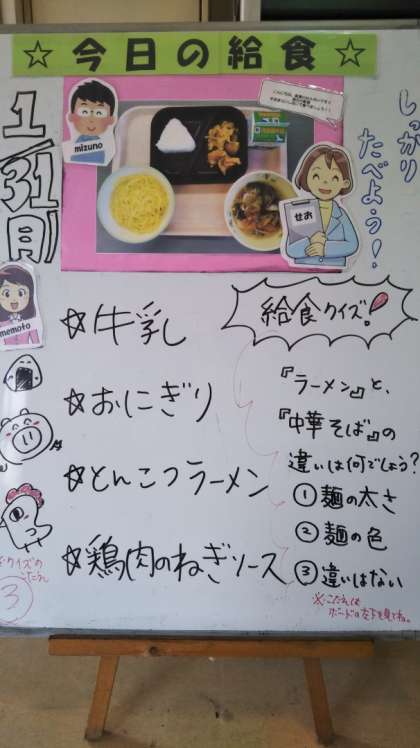 ☆今日の給食☆
1/31(月)
mizuno
しっかり
たべよう！
せお
memoto
☆牛乳
☆おにぎり
☆とんこつラーメン
☆鶏肉のねぎソース
給食クイズ！
『ラーメン』と、
『中華そば』の
違いは何でしょう？
①麺の太さ
②麺の色
③違いはない
※こたえは
ボードの左下を見てね。
※クイズの
こたえ
3